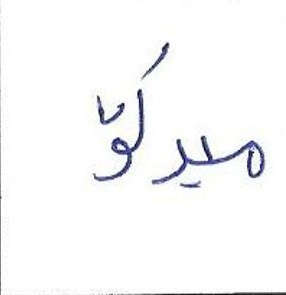 میرکۆ